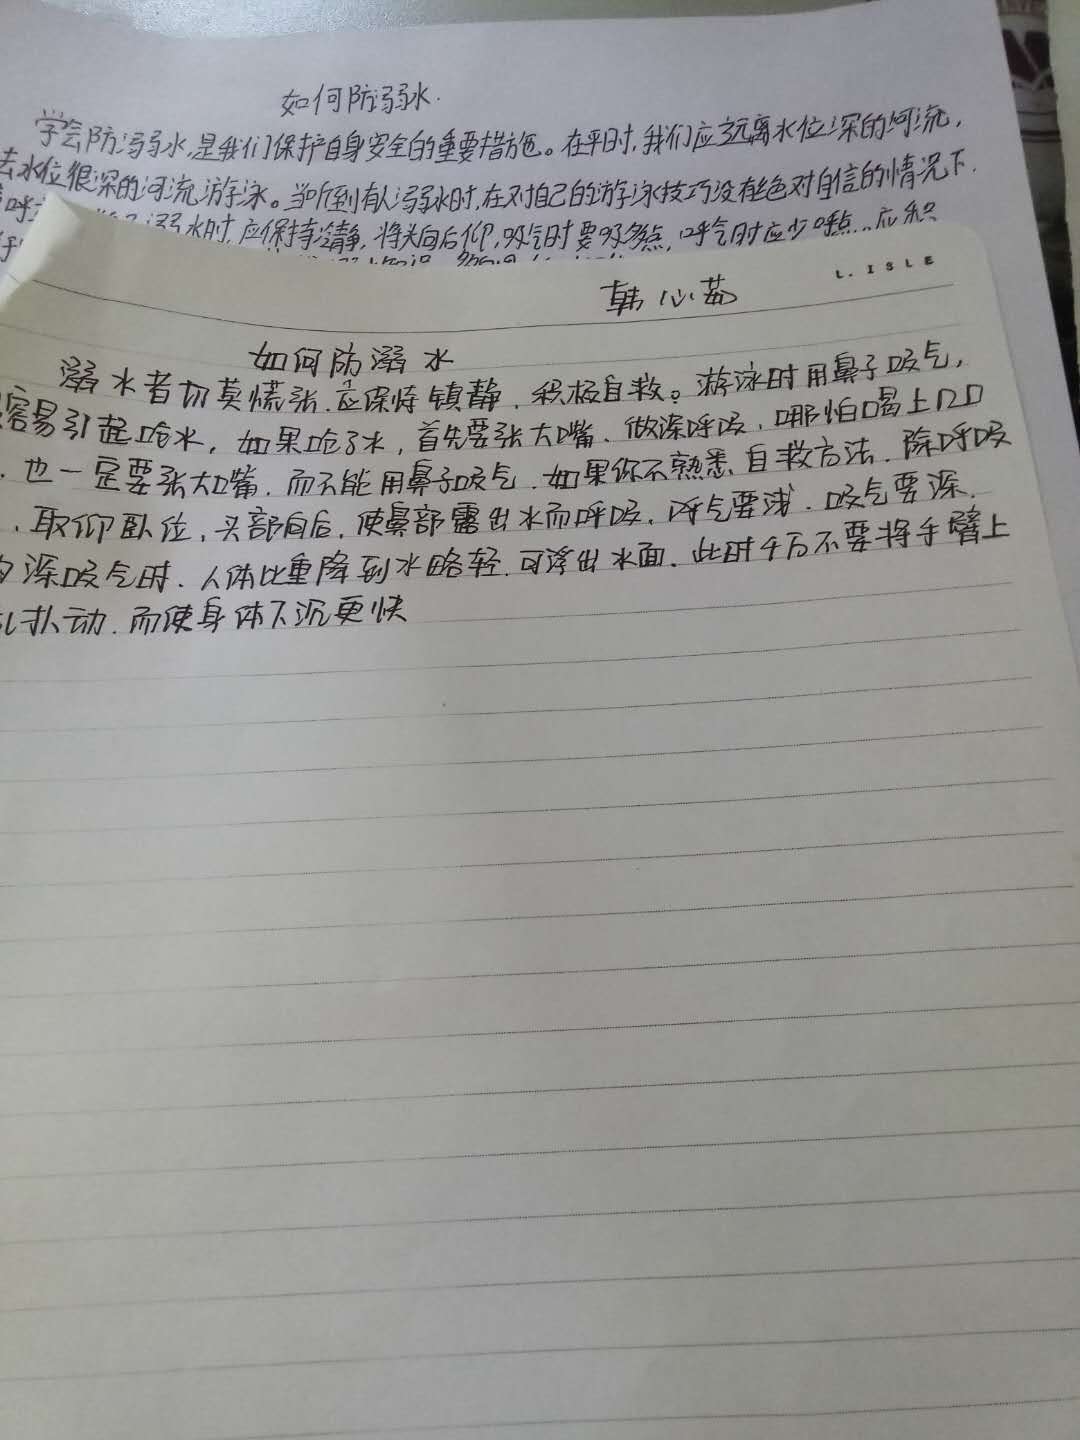 如何防溺水.
学会防溺水,是我们保护自身安全的重要措施。在平时,我们应远离水位深的河流,
去水位很深的河流游泳。当听到有人溺水时,在对自己的游泳技巧没有绝对自信的情况下.
呼
溺水时,应保持冷静,将头向后仰,吸气时要吸多点,呼气时应少呼点.应积
L. ISLE
韩心茹
如何防溺水
溺水者切莫慌张.应保持镇静.积极自救。游泳时用鼻子吸气,
容易引起呛水,如果呛了水,首先要张大嘴.做深呼吸,哪怕喝上口口
.也一定要张大嘴.而不能用鼻子吸气.如果你不熟悉.自救方法.除呼吸
.取仰卧位,头部向后,使鼻部露出水而呼吸.呼气要浅.吸气要深.
深吸气时.人体比重降到水略轻.可浮出水面.此时千万不要将手臂上
乱扑动.而使身体下沉更快